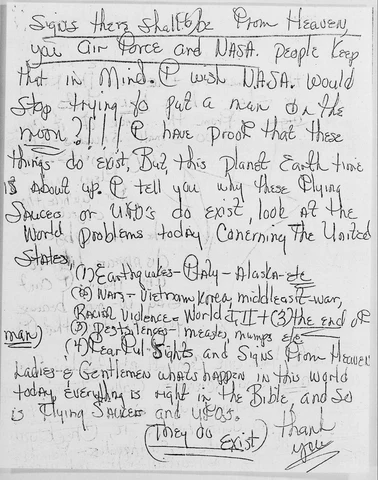 Signs there shall be From Heaven
you Air Force and NASA. People Keep
that in Mind. I wish NASA. Would
Stop trying to put a man on the
moon?!!!! I have Proof that these
things do exist, But, this planet Earth time
is about up. I tell you why these Flying
Saucers or UFO's do exist, look at the
World Problems today Conerning The United
States,
(1) Earthquakes - Italy - Alaska - etc
(2) Wars - Vietnam, Korea, middleast-war,
Racial Violence = World I, II + (3) the end of
man) (3) Pestilences - measles, mumps etc
(4) Fearful Sights, and Signs From Heaven
Ladies & Gentlemen what's happen in this World
today, Everything is right in the Bible, and So
is Flying Saucers and UFOs.
(They do Exist) Thank
you